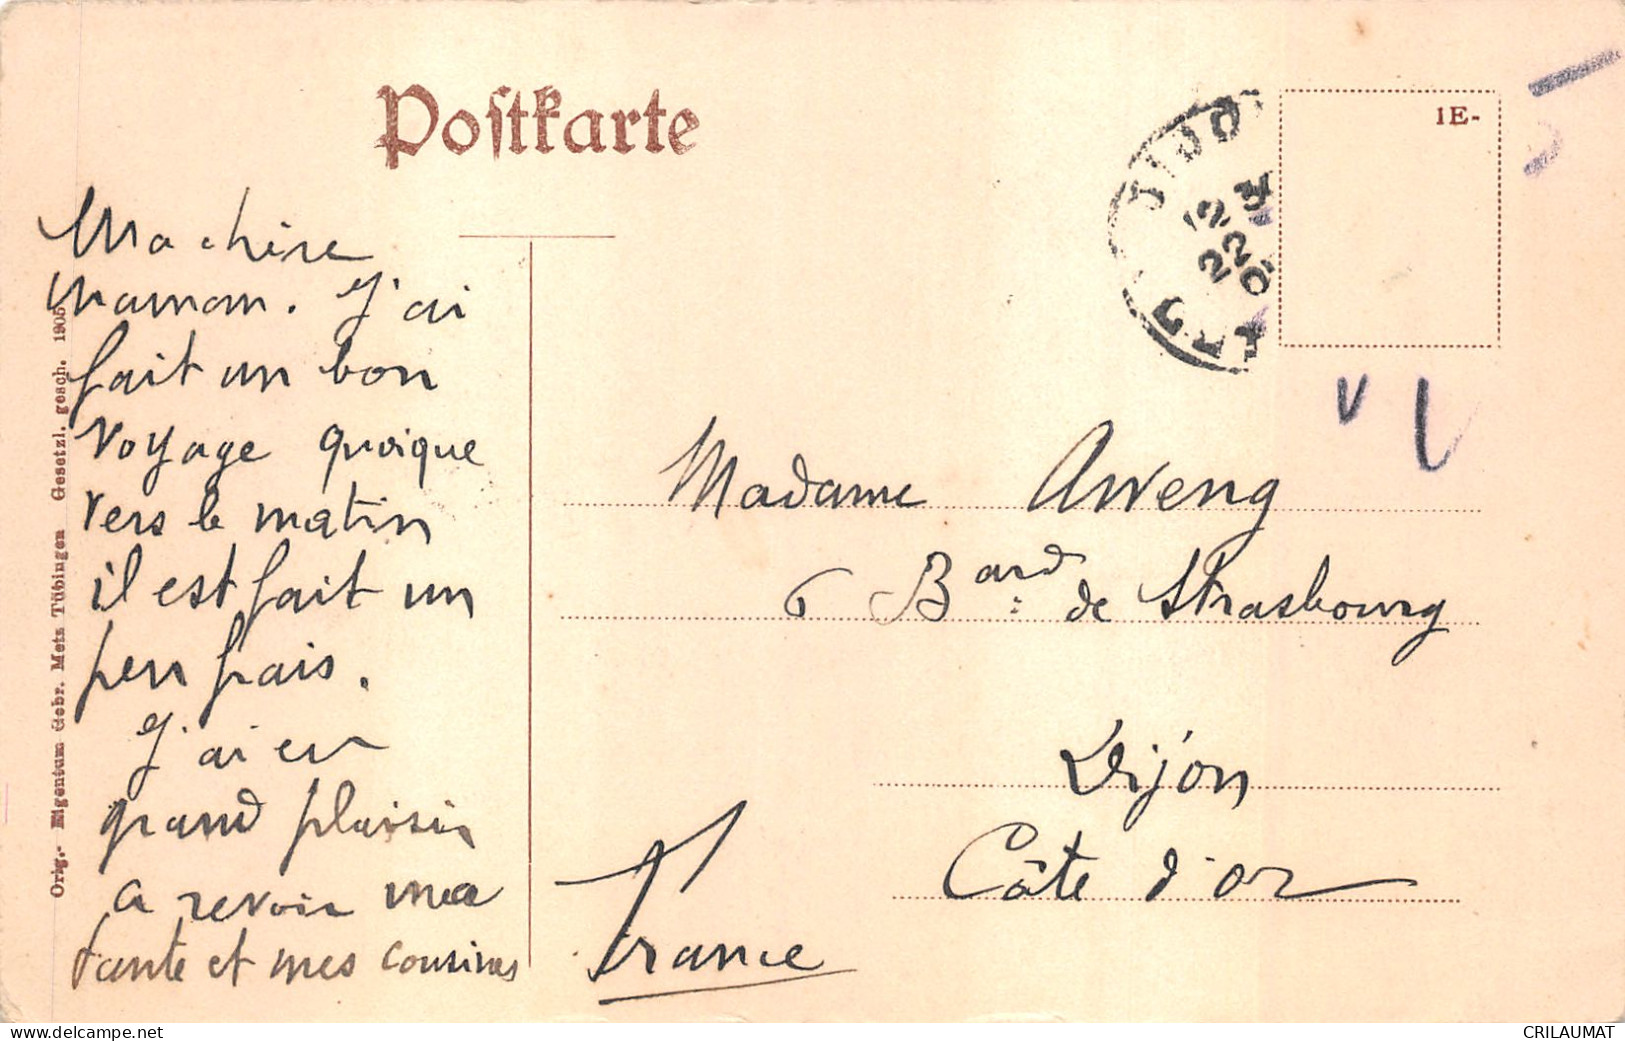 Postkarte
1E-
DIJO
12
22
Ma chère
Maman. J'ai
fait un bon
voyage quoique
vers le matin
il est fait un
peu frais.
J'ai eu
grand plaisir
a revoir ma
tante et mes cousines
Madame Aweng
6 Bard de Strasbourg
Dijon
Côte d'or
France
Orig.- Eigentum Gebr. Metz Tübingen Gesetzl. gesch. 1905
www.delcampe.net
CRILAUMAT